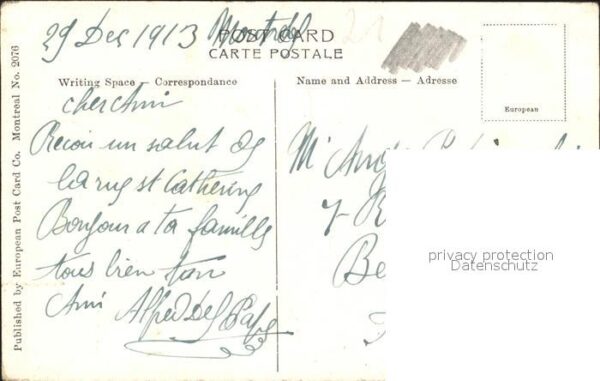 29 Dec 1913 Montreal
POST CARD
CARTE POSTALE
Writing Space — Correspondance
Name and Address — Adresse
European
Published by European Post Card Co. Montreal No. 2076
cher Ami
Recoi un salut de
la rue st Catherine
Bonjour a ta famille
tous bien ton
Ami Alfred
Mr
7
Be
privacy protection
Datenschutz